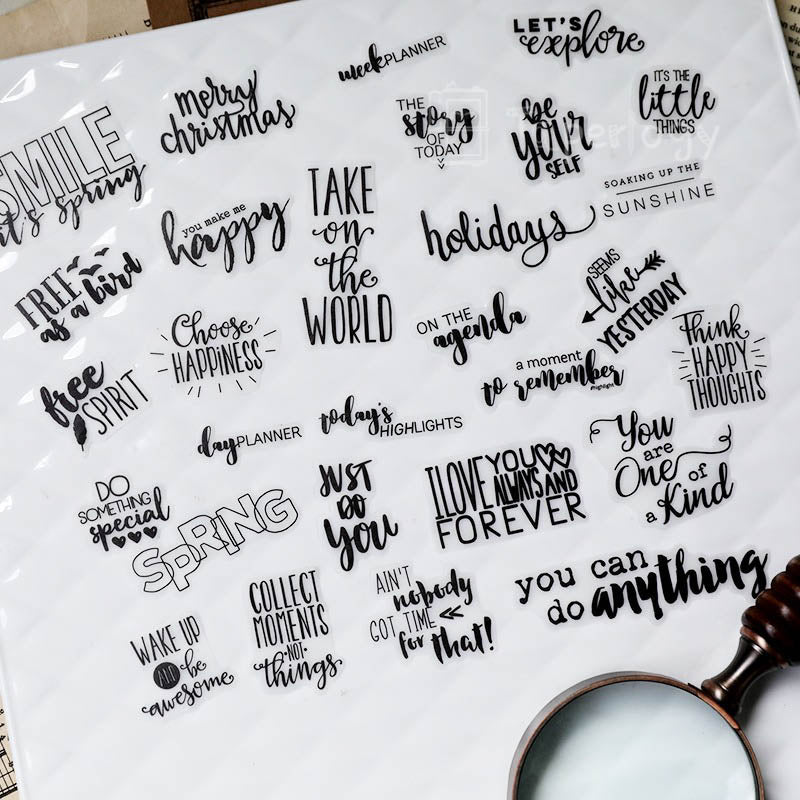 LET'S
explore
week PLANNER
merry
christmas
THE
story
OF
TODAY
be
YOUR
SELF
IT'S THE
little
THINGS
SMILE
it's spring
you make me
happy
TAKE
on
the
WORLD
holidays
SOAKING UP THE
SUNSHINE
FREE
as a bird
Choose
HAPPINESS
ON THE
agenda
SEEMS
like
YESTERDAY
a moment
to remember
#highlight
Think
HAPPY
THOUGHTS
free
SPIRIT
day PLANNER
today's
HIGHLIGHTS
DO
SOMETHING
special
SPRING
JUST
DO
YOU
I LOVE YOU
ALWAYS AND
FOREVER
You
are
One of
a Kind
WAKE UP
AND be
awesome
COLLECT
MOMENTS
·NOT·
things
AIN'T
nobody
GOT TIME
for that!
you can
do anything